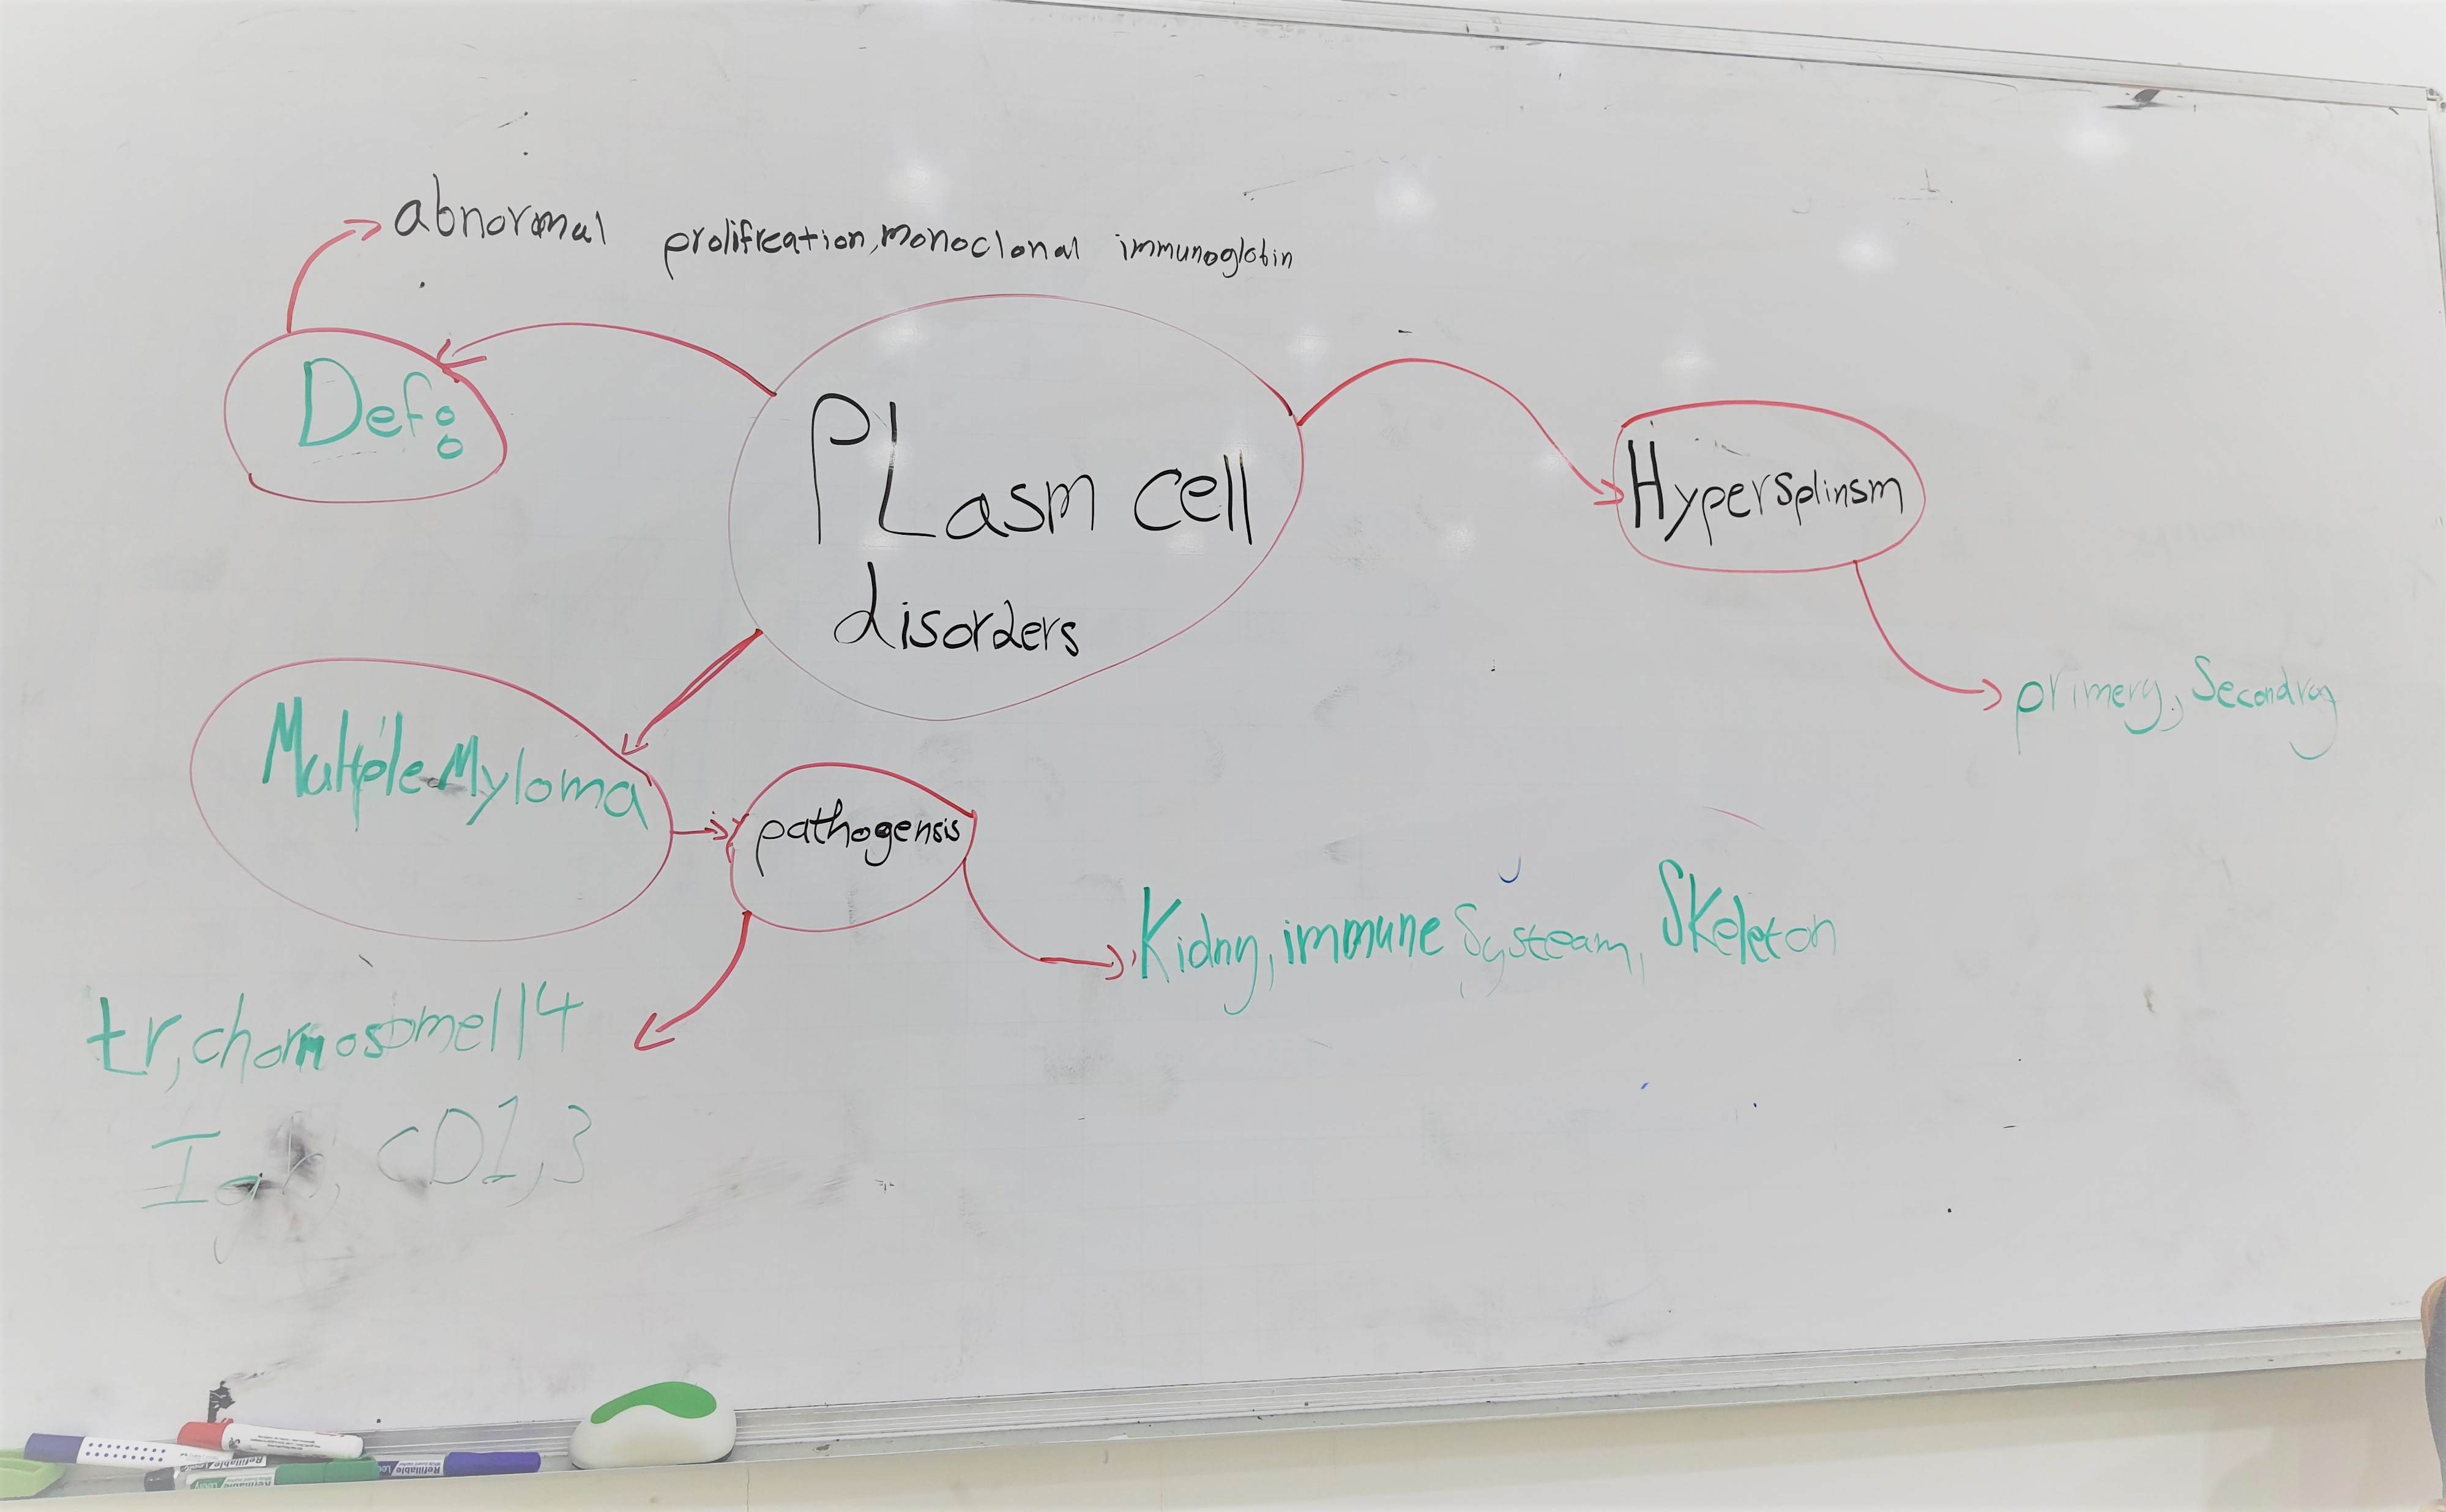 abnormal prolifreation, monoclonal immunoglobin
Def:
PLasm cell
disorders
Hypersplinsm
primery, Secondry
Multple Myloma
pathogensis
Kidny, immune Systeam, Skeleton
tr, chormosomel 14
CD1,3
Refillable
Refillable